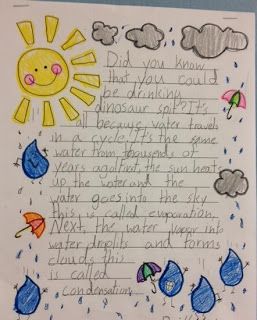 Did you know
that you could
be drinking
dinosaur spit? It's
all because water travels
in a cycle. It's the same
water from thousends of
years ago! First, the sun heats
up the water and the
water goes into the sky
this is called evaporation.
Next, the water vapor into
water droplits and forms
clouds this
is called
condensation.